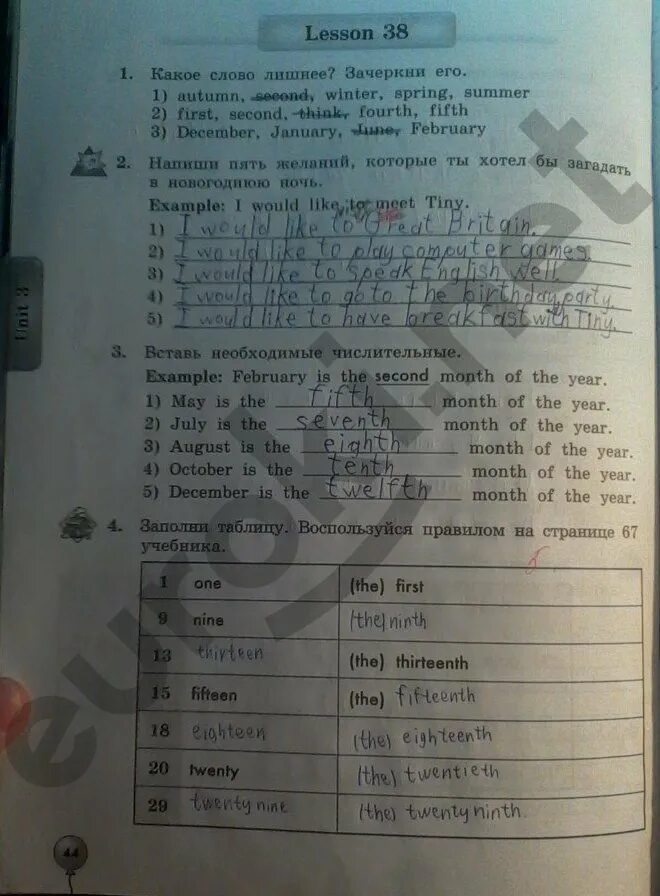 Lesson 38
1. Какое слово лишнее? Зачеркни его.
1) autumn, second, winter, spring, summer
2) first, second, think, fourth, fifth
3) December, January, June, February
2. Напиши пять желаний, которые ты хотел бы загадать
в новогоднюю ночь.
Example: I would like to meet Tiny.
1) I would like to Great Britain.
2) I would like to play computer games.
3) I would like to speak English well.
4) I would like to go to the birthday party.
5) I would like to have breakfast with Tiny.
Unit 3
3. Вставь необходимые числительные.
Example: February is the second month of the year.
1) May is the fifth month of the year.
2) July is the seventh month of the year.
3) August is the eighth month of the year.
4) October is the tenth month of the year.
5) December is the twelfth month of the year.
4. Заполни таблицу. Воспользуйся правилом на странице 67
учебника.
1 one (the) first
9 nine (the) ninth
13 thirteen (the) thirteenth
15 fifteen (the) fifteenth
18 eighteen (the) eighteenth
20 twenty (the) twentieth
29 twenty nine (the) twenty ninth
44
euroki.net